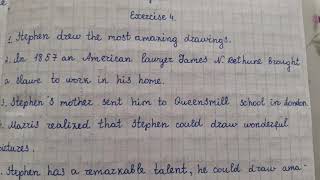 Exercise 4.
1. Stephen drew the most amaxing drawings.
2. In 1857 an American lawyer James N. Bethune brought
a slave to work in his home.
3. Stephen's mother sent him to Queensmill school in London
Marris realized that Stephen could draw wonderful
pictures.
. Stephen has a remarkable talent, he could draw ama-